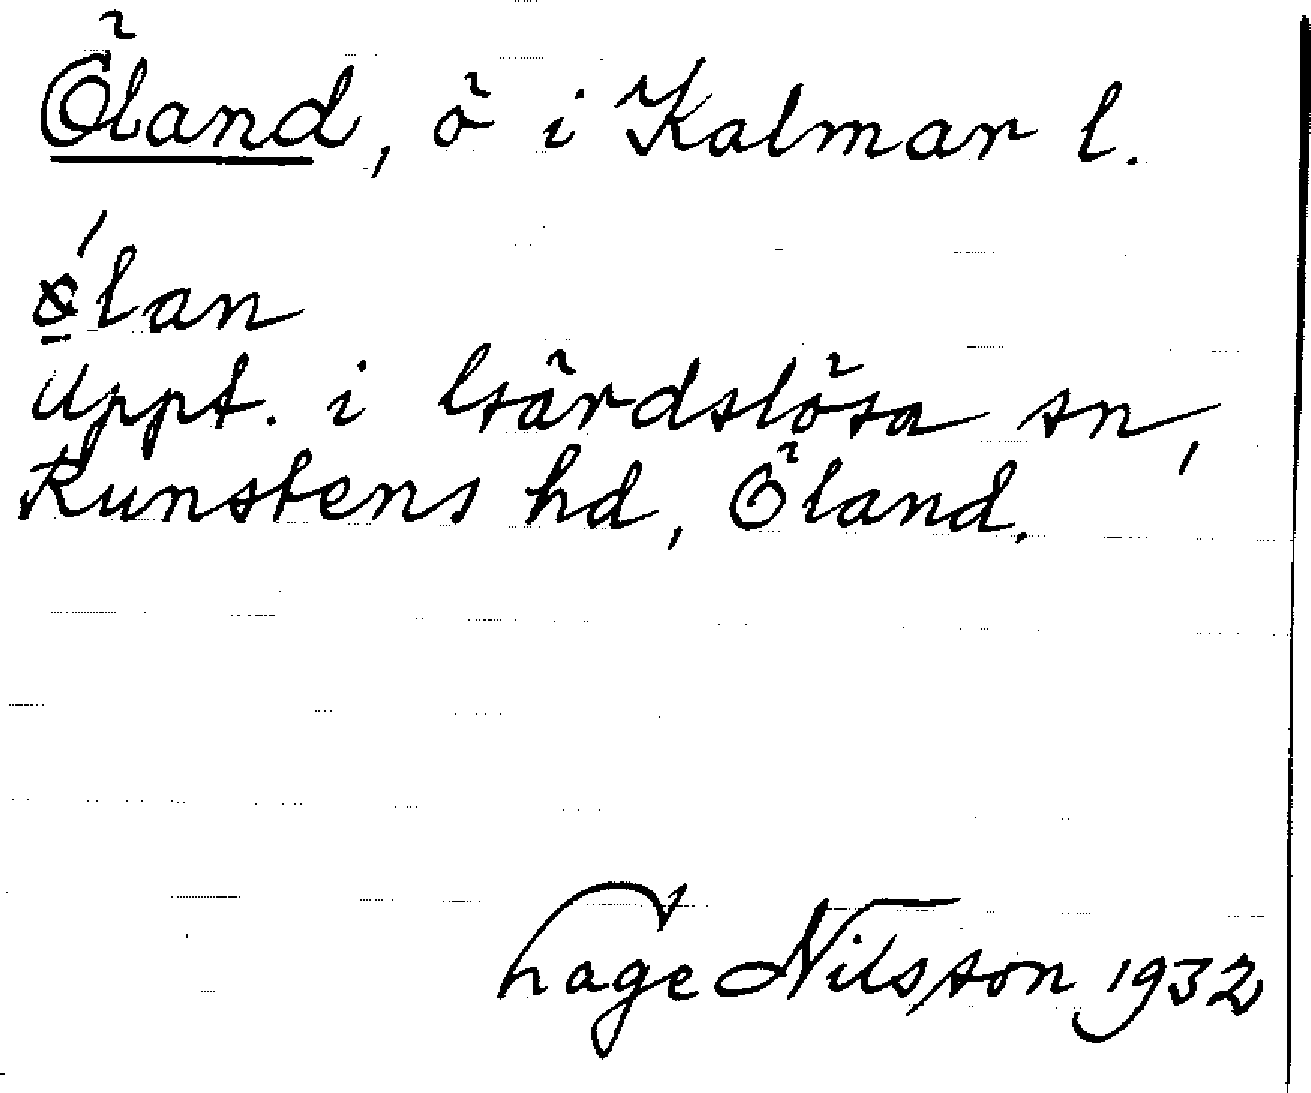 Öland, ö i Kalmar l.
ǿ̱lan
Uppt. i Gärdslösa sn,
Runstens hd, Öland.
Tage Nilsson 1932